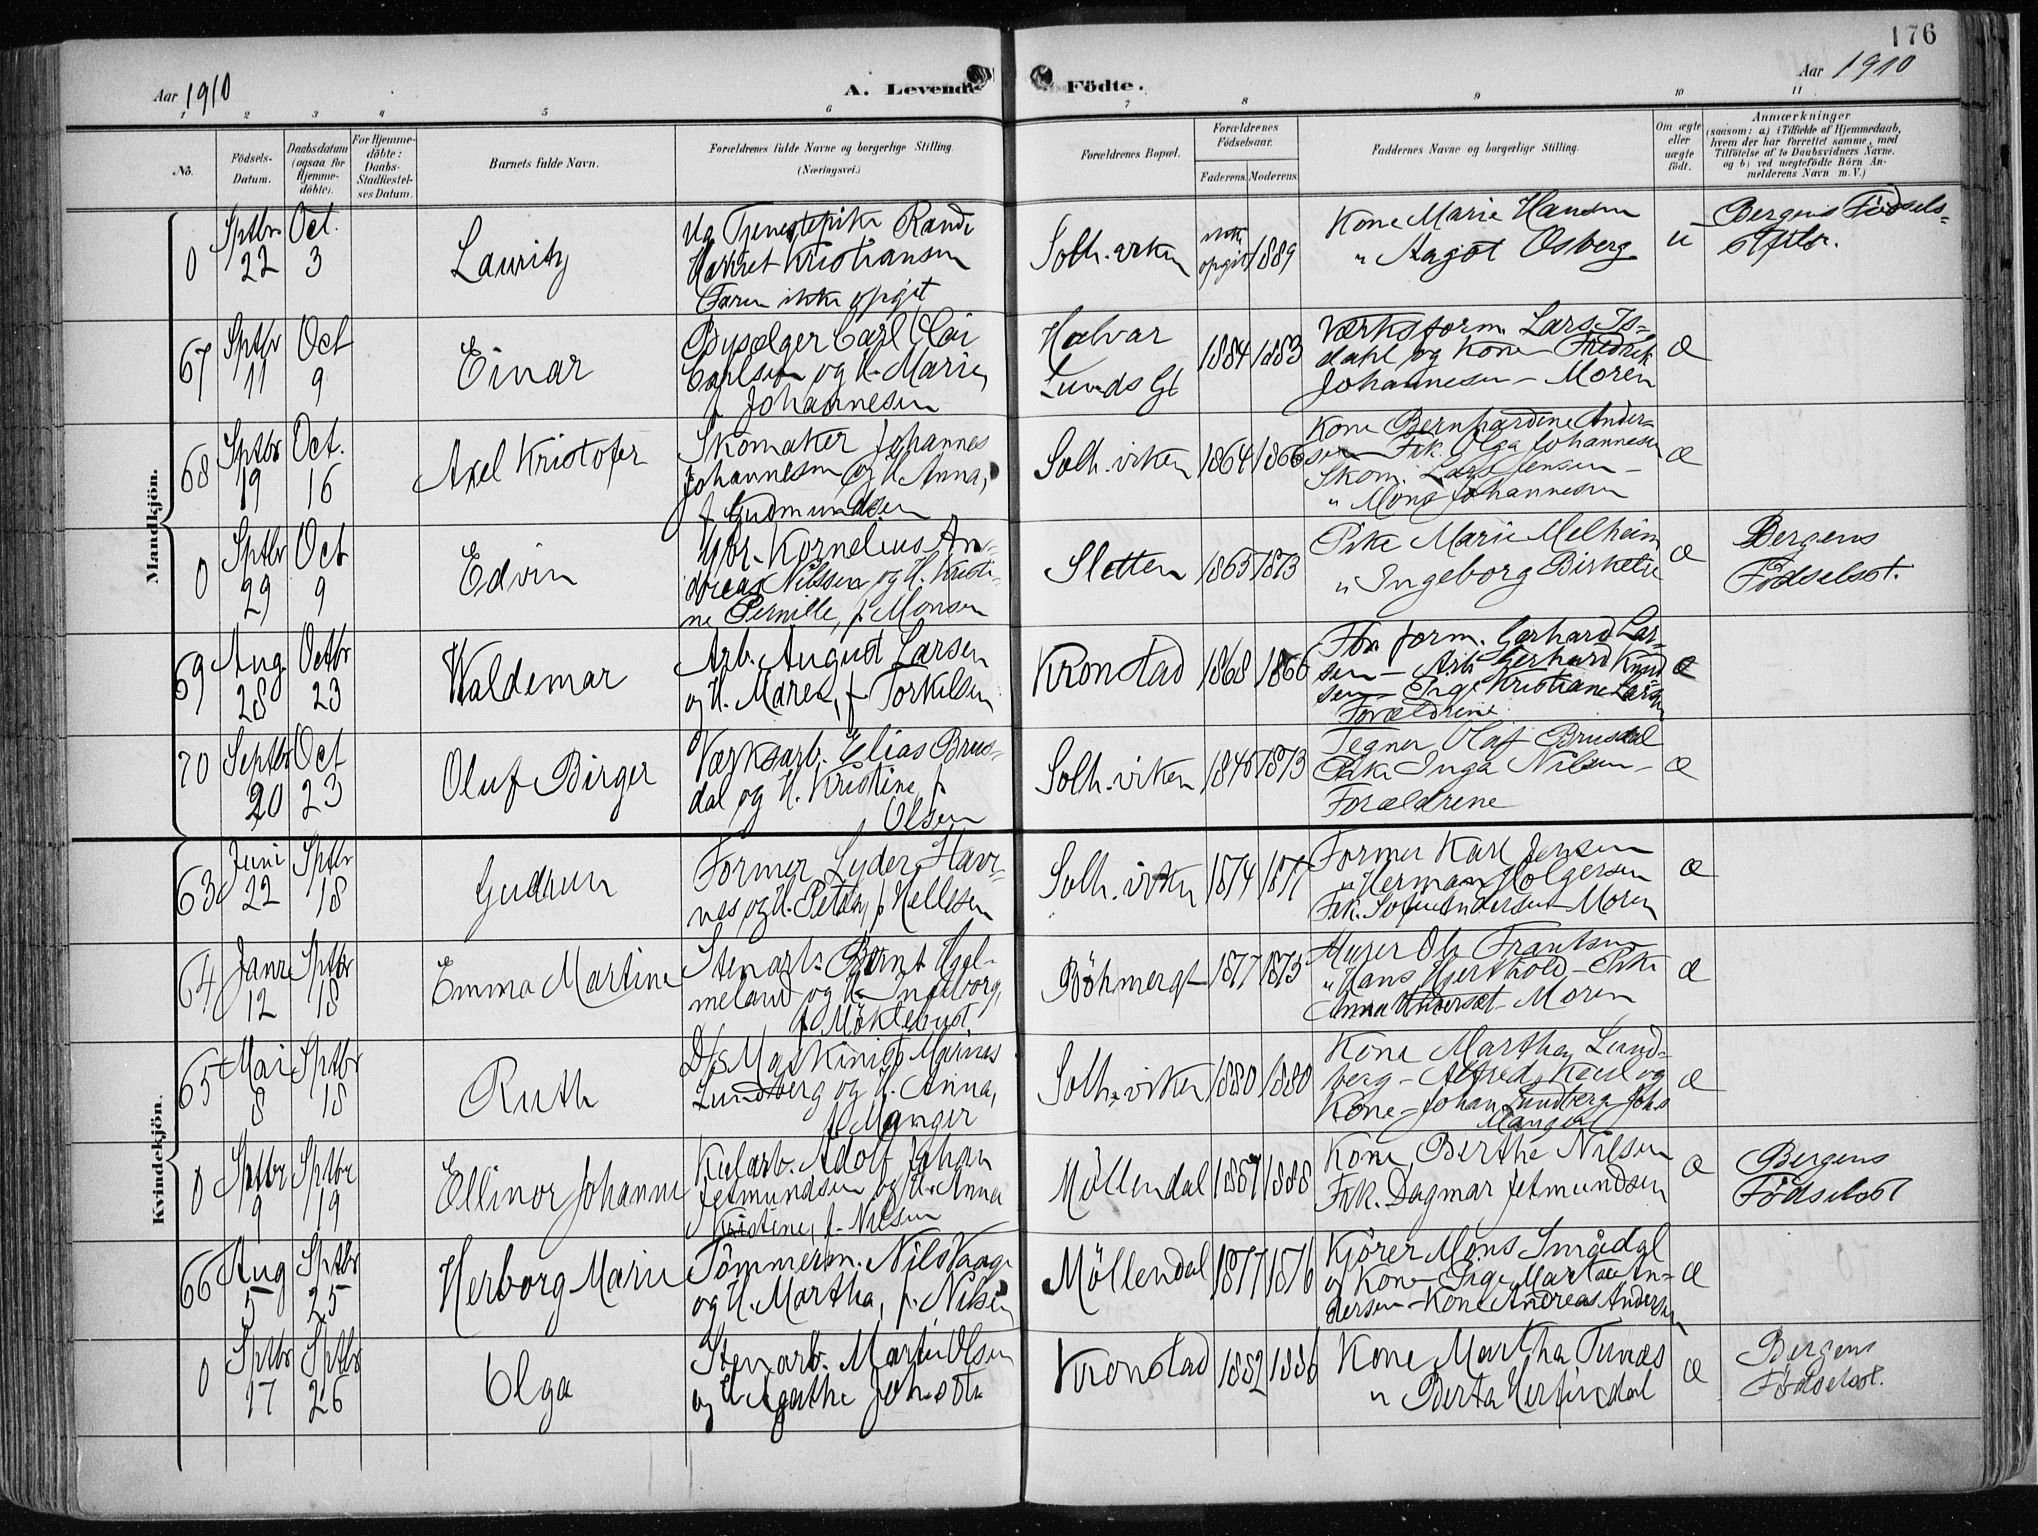 176
Aar 1910
A. Levende Födte.
Aar 1910
1 2 3 4 5 6 7 8 9 10 11
No.
Födsels-
Datum.
Daabsdatum
(ogsaa for
Hjemme-
döbte).
For Hjemme-
döbte:
Daabs-
Stadfæstel-
ses Datum.
Barnets fulde Navn.
Forældrenes fulde Navne og borgerlige Stilling.
(Næringsvei.)
Forældrenes Bopæl.
Forældrenes
Födselsaar.
Faderens. Moderens.
Faddernes Navne og borgerlige Stilling.
Om ægte
eller
uægte
födt.
Anmærkninger
(saasom: a) i Tilfælde af Hjemmedaab,
hvem der har forrettet samme, med
Tilföielse af to Daabsvidners Navne,
og b) ved uegtefödte Börn An-
melderens Navn m. V.)
Mandkjön.
0 Sptbr 22 Oct. 3 Lauritz
Ug Tjenestepike Randi
Kristiansen
Faren ikke opgit
Solh.virken
ikke opgit 1889
Kone Marie Hansen
" Aagot Osberg
u
Bergens Födsels-
stiftr.
67 Sptbr 11 Oct 9 Einar
Bysælger Carl Olai
Carlsen og H. Marie,
f. Johannesen
Halvar
Lunds Gt
1884 1883
Værksform. Lars Is-
dahl og Kone Fredrik
Johannesen - Moren
Æ
68 Sptbr 19 Oct. 16 Axel Kristofer
Skomaker Johannes
Johannesen og H. Anna,
f. Gudmundsen
Solh.virken
1864 1866
Kone Bernhardine Ander-
sen Frk. Olga Johannesen
Skom. Lars Jensen -
" Mons Johannesen
Æ
0 Sptbr 29 Oct 9 Edvin
Kornelius An-
dreas Nilssen og H. Kristi-
ne Pernille, f. Monsen
Sletten
1865 1873
Pike Marie Melheim
" Ingeborg Birkeli
Æ
Bergens
Födselsst.
69 Aug 28 Octbr 23 Waldemar
Arb. August Larsen
og H. Maren, f Torkilsen
Kronstad
1868 1866
form. Gerhard Lar-
sen - Arb Gerhard Knud
sen - Kristiane Larsen
Forældrene
Æ
70 Septbr 20 Oct 23 Oluf Birger
Værksarb. Elias Brus-
dal og H. Kristine, f.
Olsen
Solh.virken
1846 1873
Tegner Olaf Brusdal
Pike Inga Nilsen -
Forældrene
Æ
Kvindekjön.
63 Juni 22 Sptbr 18 Gudrun
Former Lyder Havr-
nes og H. Petda, f Hellesen
Solh.virken
1874 1877
Former Karl Jensen
" Herman Holgersen
Frk. Sofie Andersen - Moren
Æ
64 Janr 12 Sptbr 18 Emma Martine
Stenarb. Bernt Hjel-
meland og H. Ingeborg,
f Möklebust
Böhmergt
1877 1873
Murer Ols Frantsen
" Hans Hjerthold - Pike
Anna Underset - Moren
Æ
65 Mai 8 Sptbr 18 Ruth
D/s Maskinist Marnes
Lundberg og H. Anna,
f. Manger
Solh.virken
1880 1880
Kone Martha Lund-
berg - Alfred Karl og
Kone - Johan Lundberg Johs
Manger
Æ
0 Sptbr 9 Sptbr 19 Ellinor Johanne
Kularb. Adolf Johan
Jetmundsen og H. Anna
Kristine, f. Nilsen
Möllendal
1887 1888
Kone Berthe Nilsen
Frk. Dagmar Jetmundsen
Æ
Bergens
Födselsst
66 Aug 5 Sptbr 25 Herborg Marie
Tömmerm. Nils Vaage
og H. Martha, f. Nilsen
Möllendal
1877 1876
Kjörer Mons Smådal
og Kone - Pige Martha An-
dersen - Kone Andreas Andersen
Æ
0 Sptbr 17 Sptbr 26 Olga
Stenarb. Martin Olsen
og H Agathe
Kronstad
1882 1886
Kone Martha Tunæs
" Berta Herfindal
Æ
Bergens
Födselsst.